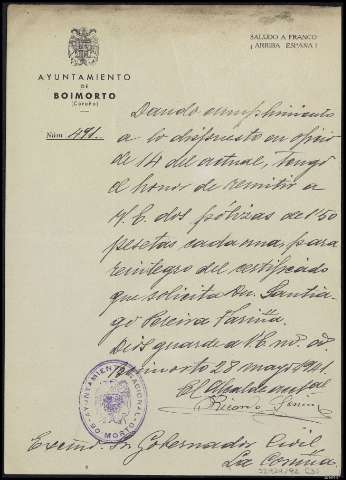 SALUDO A FRANCO
¡ARRIBA ESPAÑA!
AYUNTAMIENTO
DE
BOIMORTO
(Coruña)
Núm. 491.
Dando cumplimiento
a lo dispuesto en oficio
de 14 del actual, tengo
el honor de remitir a
V.E. dos pólizas de 1'50
pesetas cada una, para
reintegro del certificado
que solicita Dn. Santia-
go Pereira Fariña.
Dios guarde a V.E. ms. as.
Boimorto 28 mayo 1941.
El Alcalde actal
Ricardo
AYUNTAMIENTO NACIONAL DE BOIMORTO
Excmo. Sr. Gobernador Civil
La Coruña